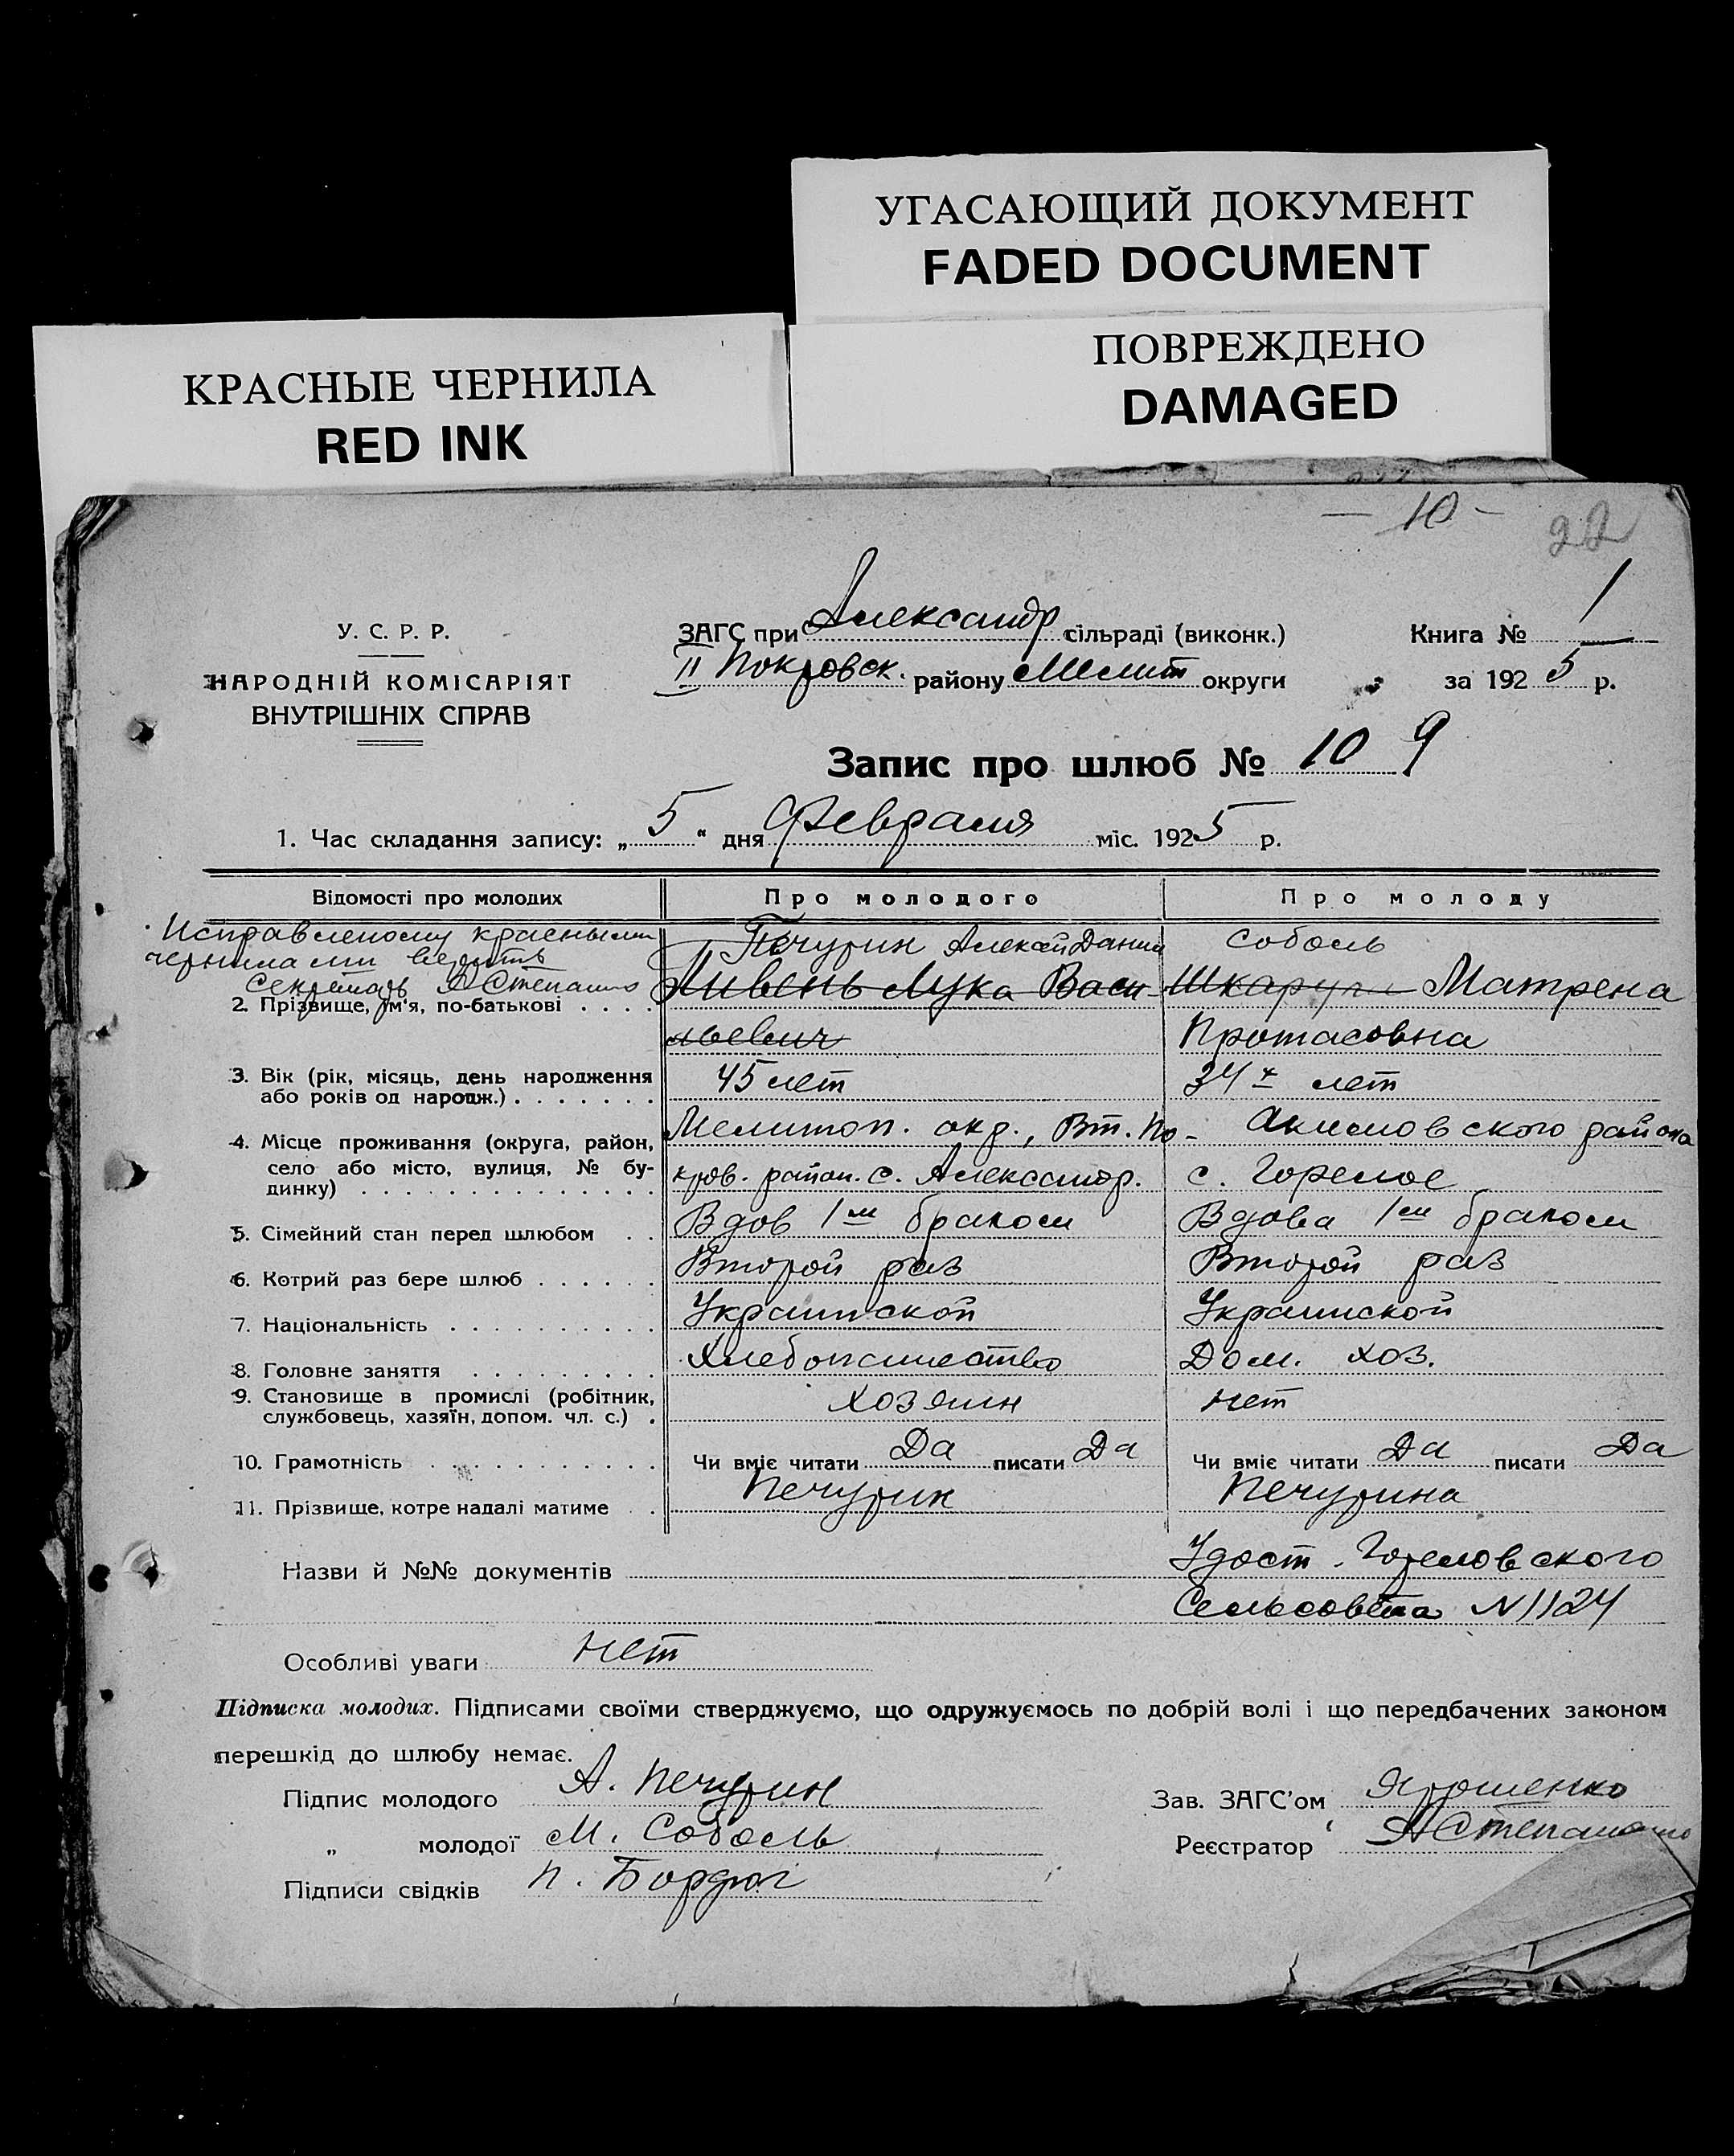 УГАСАЮЩИЙ ДОКУМЕНТ
FADED DOCUMENT
КРАСНЫЕ ЧЕРНИЛА
RED INK
ПОВРЕЖДЕНО
DAMAGED
— 10 -
22
У. С. Р. Р.
НАРОДНІЙ КОМІСАРІЯТ
ВНУТРІШНІХ СПРАВ
ЗАГС при Александр сільраді (виконк.) Книга № 1
II Покровск. району Мелит округи за 1925 р.
Запис про шлюб № 10 9
1. Час складання запису: „5“ дня Февраля міс. 1925 р.
Відомості про молодих Про молодого Про молоду
Исправленому красными
чернилами верить
Секретарь
Печурин Алексей Данил Соболь
2. Прізвище, ім'я, по-батькові . . . . Ливень Лука Васи- Матрена
льевич Протасовна
3. Вік (рік, місяць, день народження
або років од народж.) . . . . . . . 45 лет 34 х лет
4. Місце проживання (округа, район,
село або місто, вулиця, № бу-
динку) . . . . . . . . . . . . . .
Мелитоп. окр., Вт. По- Акимовского района
кров. район. с. Александр. с. Горелое
5. Сімейний стан перед шлюбом . . Вдов 1м браком Вдова 1м браком
6. Котрий раз бере шлюб . . . . . . Второй раз Второй раз
7. Національність . . . . . . . . . . Украинской Украинской
8. Головне заняття . . . . . . . . . Хлебопашество Дом. хоз.
9. Становище в промислі (робітник,
службовець, хазяїн, допом. чл. с.) . хозяин нет
10. Грамотність . . . . . . . . . . . Чи вміє читати Да писати Да Чи вміє читати Да писати Да
11. Прізвище, котре надалі матиме . . Печурин Печурина
Назви й №№ документів Удост. Гореловского
Сельсовета N 1124
Особливі уваги нет
Підписка молодих. Підписами своїми стверджуємо, що одружуємось по добрій волі і що передбачених законом
перешкід до шлюбу немає.
Підпис молодого А. Печурин Зав. ЗАГС'ом Ярошенко
„ молодої М. Соболь Реєстратор
Підписи свідків П.